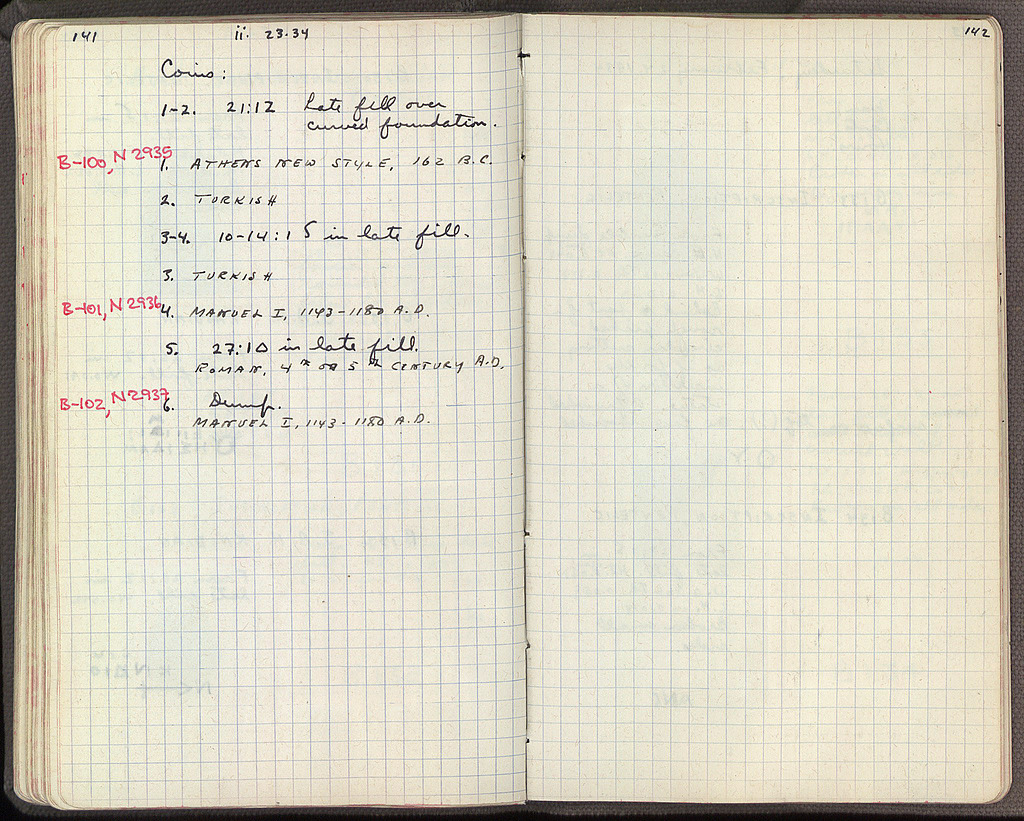 141 ii. 23.34
Coins:
1-2. 21:12 Late fill over
curved foundation.
B-100, N 2935 1. ATHENS NEW STYLE, 162 B.C.
2. TURKISH
3-4. 10-14:15 in late fill.
3. TURKISH
B-101, N 2936 4. MANUEL I, 1143-1180 A.D.
5. 27:1Δ in late fill.
ROMAN, 4th OR 5th CENTURY A.D.
B-102, N 2937 6. Dump.
MANUEL I, 1143-1180 A.D.
142